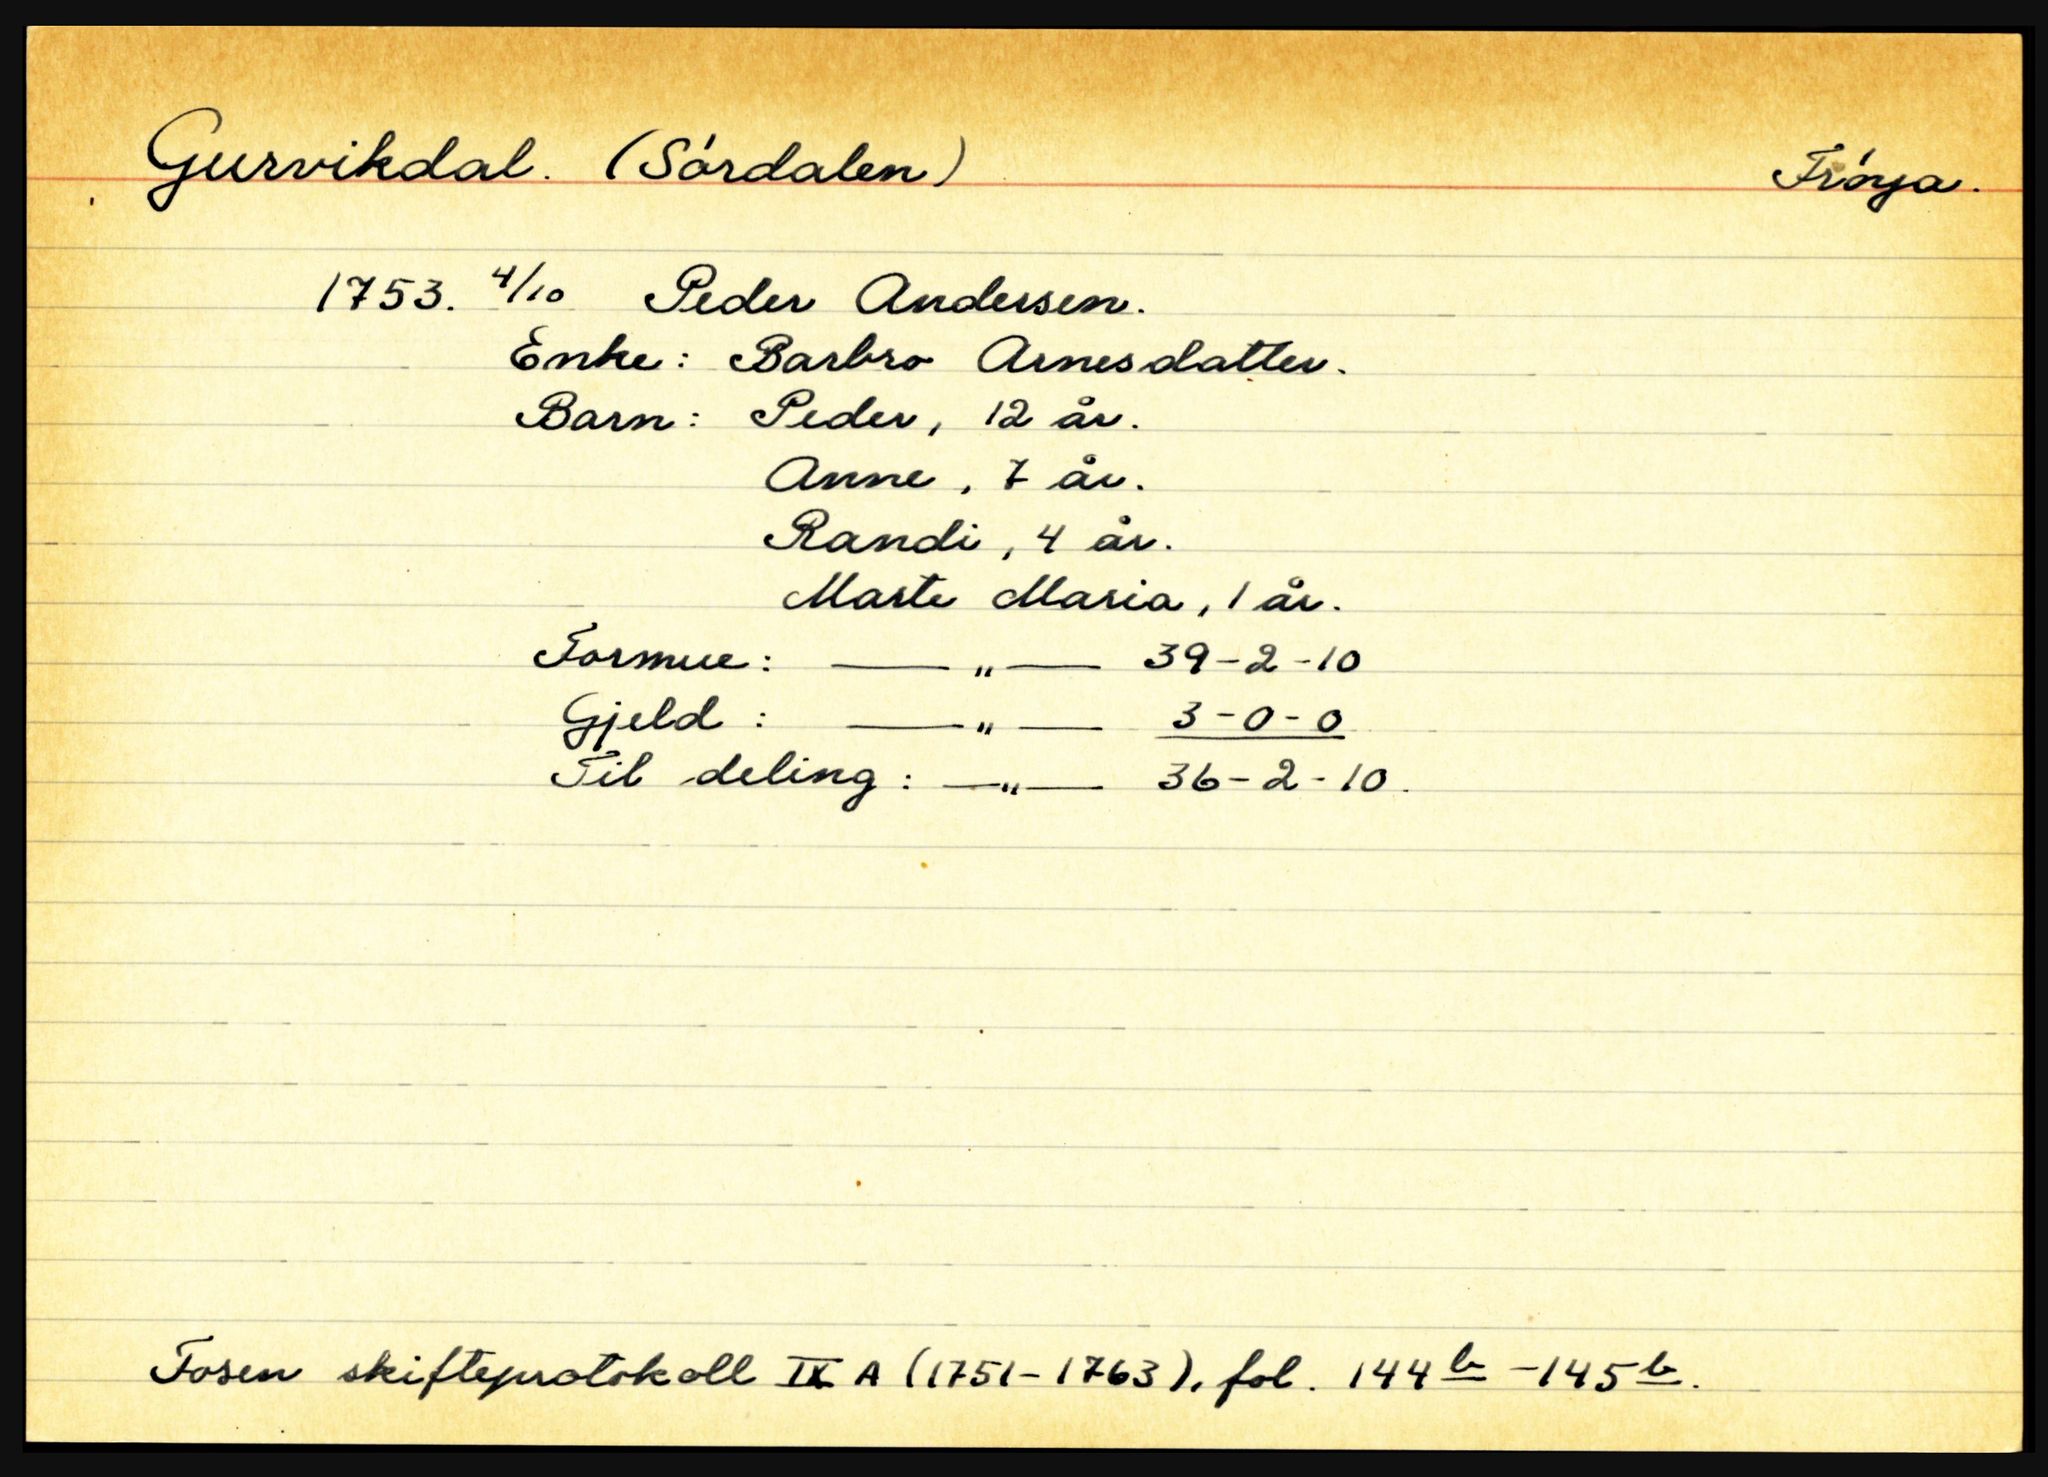 Gurvikdal. (Sórdalen) Fróya.
1753. 4/10 Peder Andersen.
Enke: Barbro Arnesdatter.
Barn: Peder, 12 år.
Anne, 7 år.
Randi, 4 år.
Marte Maria, 1 år.
Formue: —„— 39-2-10
Gjeld: —„— 3-0-0
Til deling: —„— 36-2-10.
Fosen skifteprotokoll IX A (1751-1763), fol. 144b-145b.